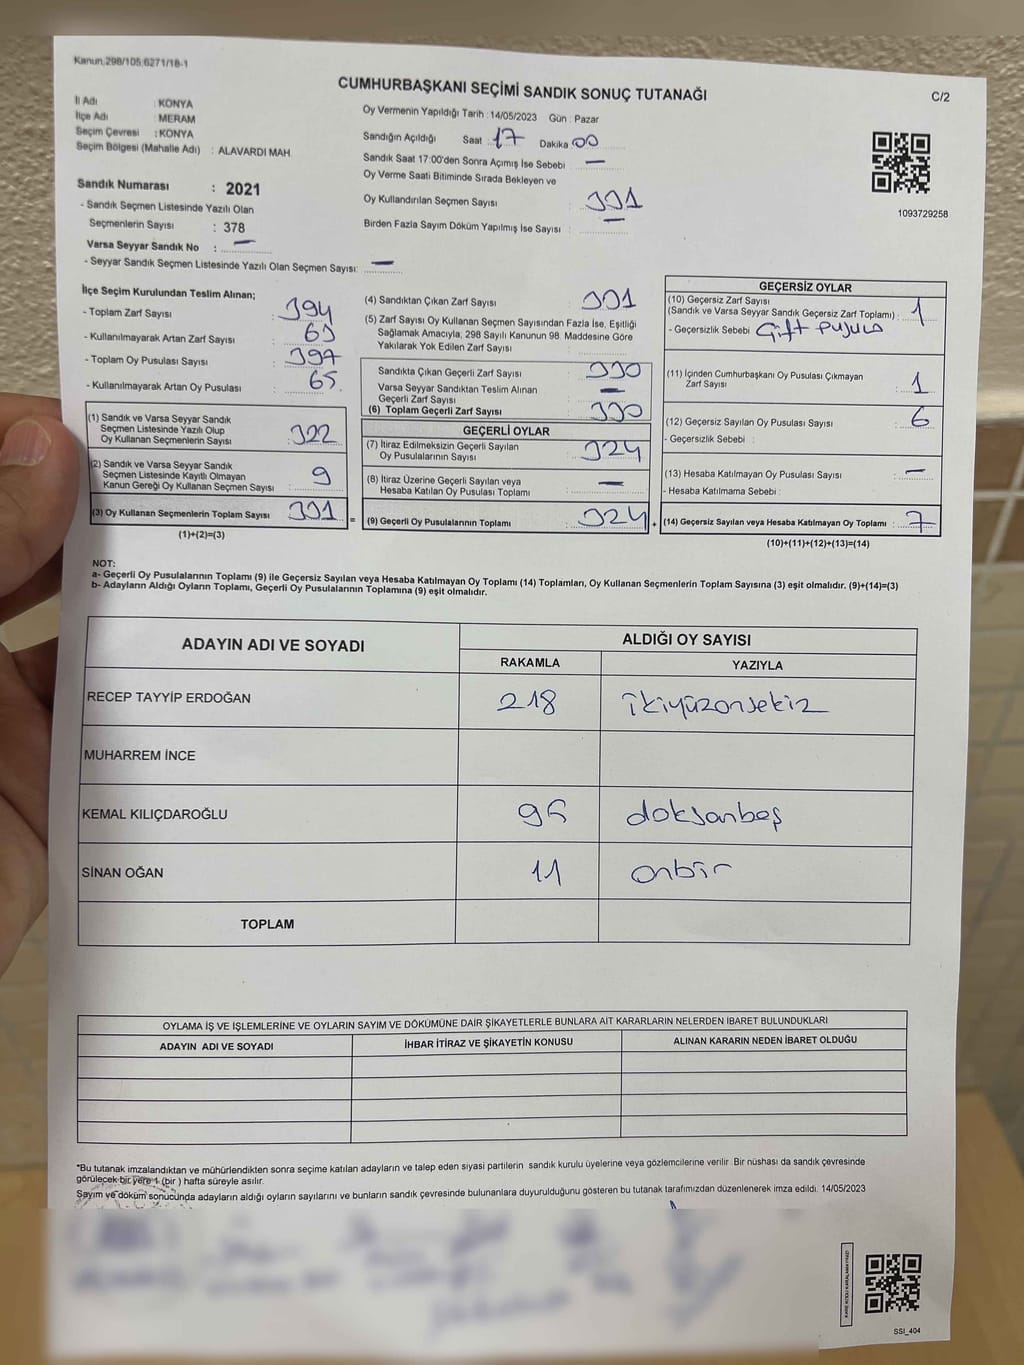 Kanun;298/105;6271/18-1
CUMHURBAŞKANI SEÇİMİ SANDIK SONUÇ TUTANAĞI
C/2
İl Adı : KONYA
İlçe Adı : MERAM
Seçim Çevresi : KONYA
Seçim Bölgesi (Mahalle Adı) : ALAVARDI MAH.
Oy Vermenin Yapıldığı Tarih : 14/05/2023 Gün : Pazar
Sandığın Açıldığı Saat : 17 Dakika 00
Sandık Saat 17:00'den Sonra Açımış İse Sebebi : —
Oy Verme Saati Bitiminde Sırada Bekleyen ve
Oy Kullandırılan Seçmen Sayısı : 331
Birden Fazla Sayım Döküm Yapılmış İse Sayısı : —
1093729258
Sandık Numarası : 2021
- Sandık Seçmen Listesinde Yazılı Olan
Seçmenlerin Sayısı : 378
Varsa Seyyar Sandık No : —
- Seyyar Sandık Seçmen Listesinde Yazılı Olan Seçmen Sayısı: —
İlçe Seçim Kurulundan Teslim Alınan;
- Toplam Zarf Sayısı : 394
- Kullanılmayarak Artan Zarf Sayısı : 63
- Toplam Oy Pusulası Sayısı : 397
- Kullanılmayarak Artan Oy Pusulası : 65
(1) Sandık ve Varsa Seyyar Sandık
Seçmen Listesinde Yazılı Olup
Oy Kullanan Seçmenlerin Sayısı : 322
(2) Sandık ve Varsa Seyyar Sandık
Seçmen Listesinde Kayıtlı Olmayan
Kanun Gereği Oy Kullanan Seçmen Sayısı : 9
(3) Oy Kullanan Seçmenlerin Toplam Sayısı : 331 =
(1)+(2)=(3)
(4) Sandıktan Çıkan Zarf Sayısı : 331
(5) Zarf Sayısı Oy Kullanan Seçmen Sayısından Fazla İse, Eşitliği
Sağlamak Amacıyla, 298 Sayılı Kanunun 98. Maddesine Göre
Yakılarak Yok Edilen Zarf Sayısı :
Sandıkta Çıkan Geçerli Zarf Sayısı : 330
Varsa Seyyar Sandıktan Teslim Alınan
Geçerli Zarf Sayısı : —
(6) Toplam Geçerli Zarf Sayısı : 330
GEÇERLİ OYLAR
(7) İtiraz Edilmeksizin Geçerli Sayılan
Oy Pusulalarının Sayısı : 324
(8) İtiraz Üzerine Geçerli Sayılan veya
Hesaba Katılan Oy Pusulası Toplamı : —
(9) Geçerli Oy Pusulalarının Toplamı : 324 +
GEÇERSİZ OYLAR
(10) Geçersiz Zarf Sayısı
(Sandık ve Varsa Seyyar Sandık Geçersiz Zarf Toplamı) : 1
- Geçersizlik Sebebi : Çift pusula
(11) İçinden Cumhurbaşkanı Oy Pusulası Çıkmayan
Zarf Sayısı : 1
(12) Geçersiz Sayılan Oy Pusulası Sayısı : 6
- Geçersizlik Sebebi :
(13) Hesaba Katılmayan Oy Pusulası Sayısı : —
- Hesaba Katılmama Sebebi :
(14) Geçersiz Sayılan veya Hesaba Katılmayan Oy Toplamı : 7
(10)+(11)+(12)+(13)=(14)
NOT:
a- Geçerli Oy Pusulalarının Toplamı (9) ile Geçersiz Sayılan veya Hesaba Katılmayan Oy Toplamı (14) Toplamları, Oy Kullanan Seçmenlerin Toplam Sayısına (3) eşit olmalıdır. (9)+(14)=(3)
b- Adayların Aldığı Oyların Toplamı, Geçerli Oy Pusulalarının Toplamına (9) eşit olmalıdır.
ADAYIN ADI VE SOYADI ALDIĞI OY SAYISI
RAKAMLA YAZIYLA
RECEP TAYYİP ERDOĞAN 218 ikiyüzonsekiz
MUHARREM İNCE
KEMAL KILIÇDAROĞLU 95 doksanbeş
SİNAN OĞAN 11 onbir
TOPLAM
OYLAMA İŞ VE İŞLEMLERİNE VE OYLARIN SAYIM VE DÖKÜMÜNE DAİR ŞİKAYETLERLE BUNLARA AİT KARARLARIN NELERDEN İBARET BULUNDUKLARI
ADAYIN ADI VE SOYADI İHBAR İTİRAZ VE ŞİKAYETİN KONUSU ALINAN KARARIN NEDEN İBARET OLDUĞU
*Bu tutanak imzalandıktan ve mühürlendikten sonra seçime katılan adayların ve talep eden siyasi partilerin sandık kurulu üyelerine veya gözlemcilerine verilir. Bir nüshası da sandık çevresinde
görülecek bir yere 1 (bir ) hafta süreyle asılır.
Sayım ve döküm sonucunda adayların aldığı oyların sayılarını ve bunların sandık çevresinde bulunanlara duyurulduğunu gösteren bu tutanak tarafımızdan düzenlenerek imza edildi. 14/05/2023
SSI_404